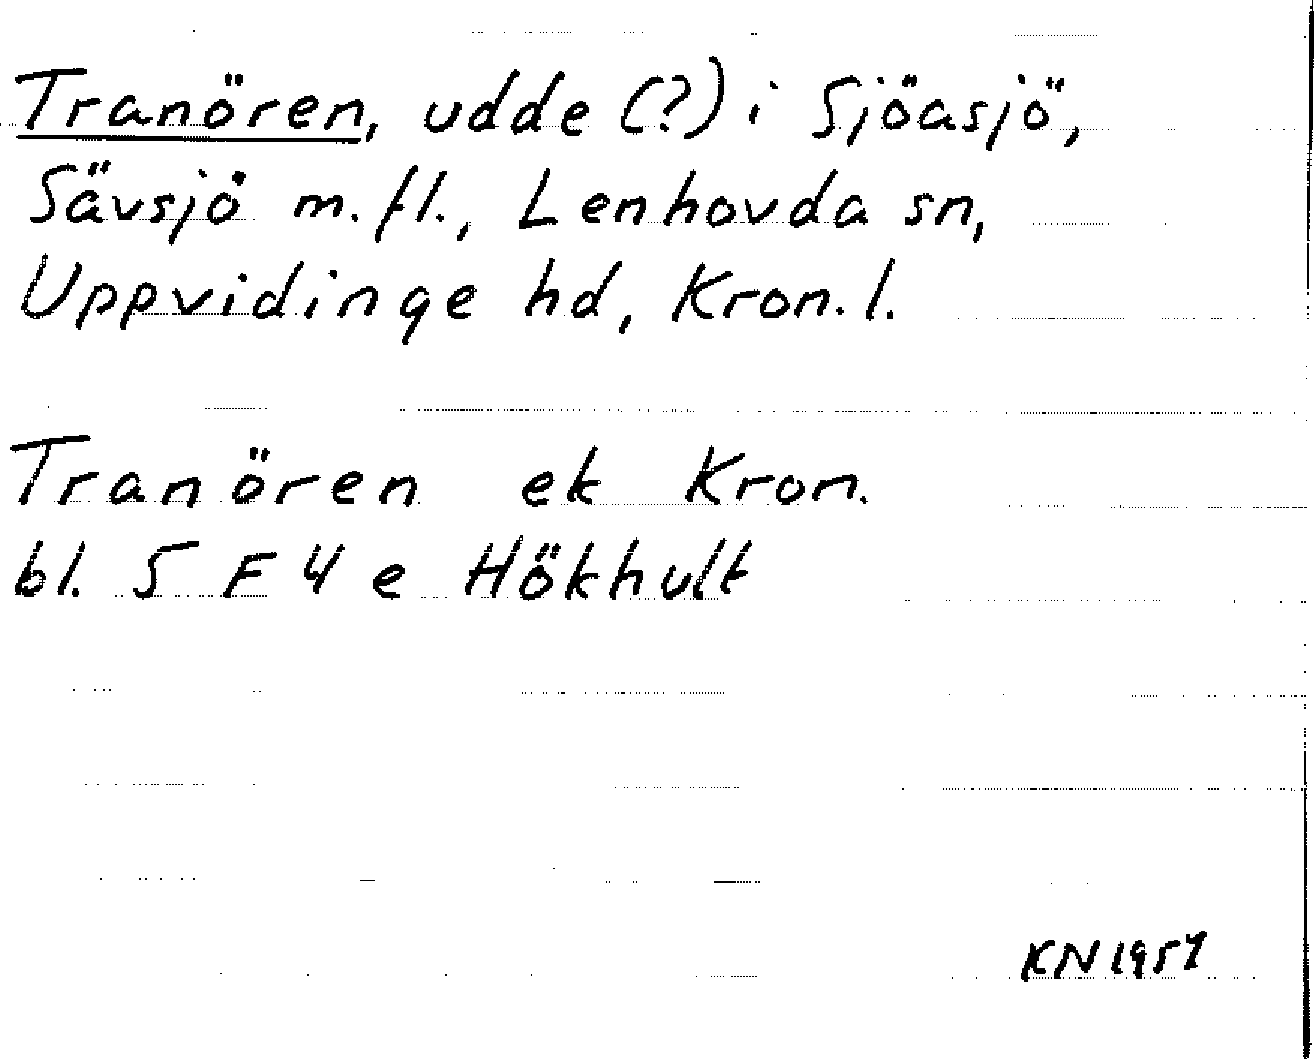 Tranören, udde (?) i Sjöasjö,
Sävsjö m.fl., Lenhovda sn,
Uppvidinge hd, Kron. l.
Tranören ek Kron.
bl. 5 F 4 e Hökhult
KN 1957